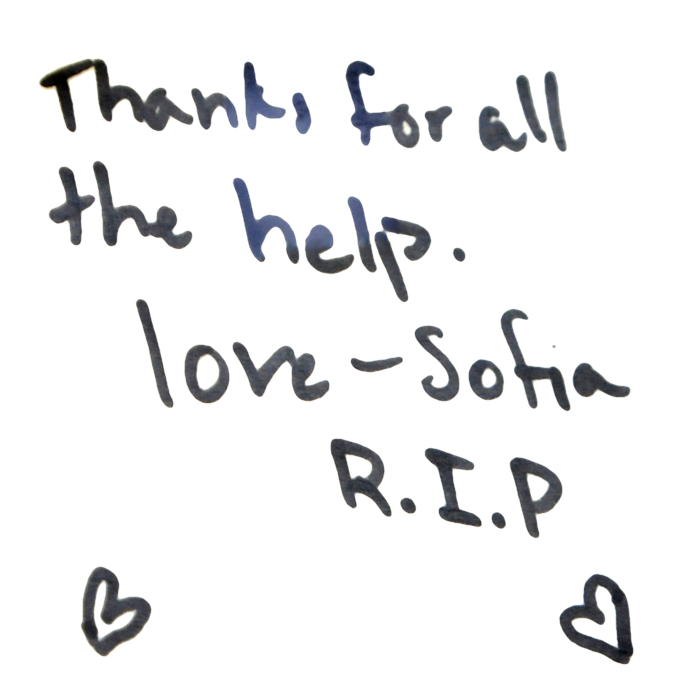 Thanks for all
the help.
love - Sofia
R.I.P